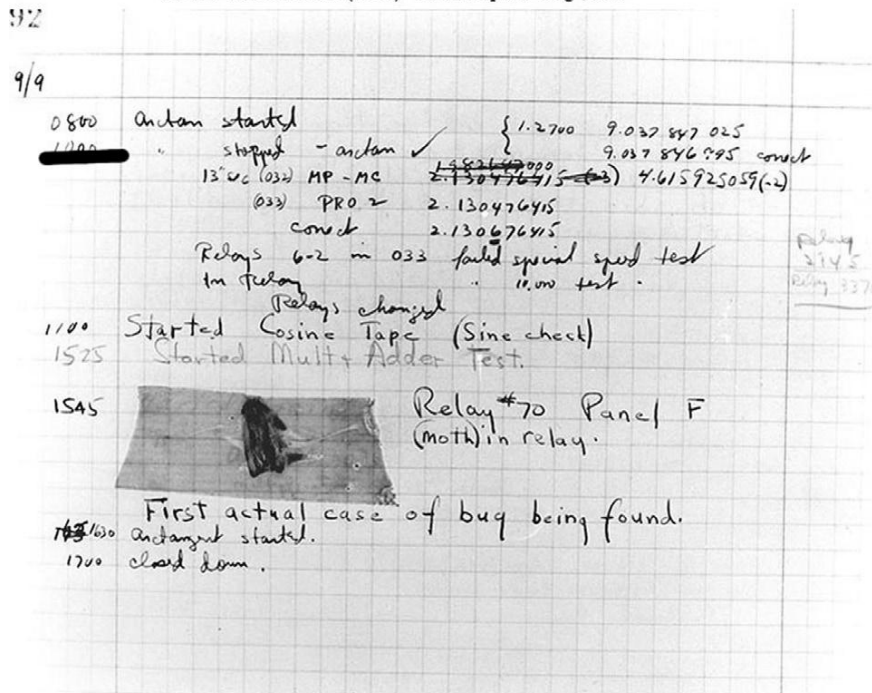 92
9/9
0800 arctan started { 1.2700 9.037 847 025
" stopped - arctan ✓ 9.037 846 995 correct
13"uc (032) MP - MC 2.130476415 (-3) 4.615925059(-2)
(033) PRO 2 2.130476415
correct 2.130676415
Relays 6-2 in 033 failed special speed test
In Relay " 10.000 test .
Relay
2145
Relay 337
Relays changed
1100 Started Cosine Tape (Sine check)
1525 Started Mult+ Adder Test.
1545 Relay #70 Panel F
(moth) in relay.
First actual case of bug being found.
1630 arctangent started.
1700 closed down.